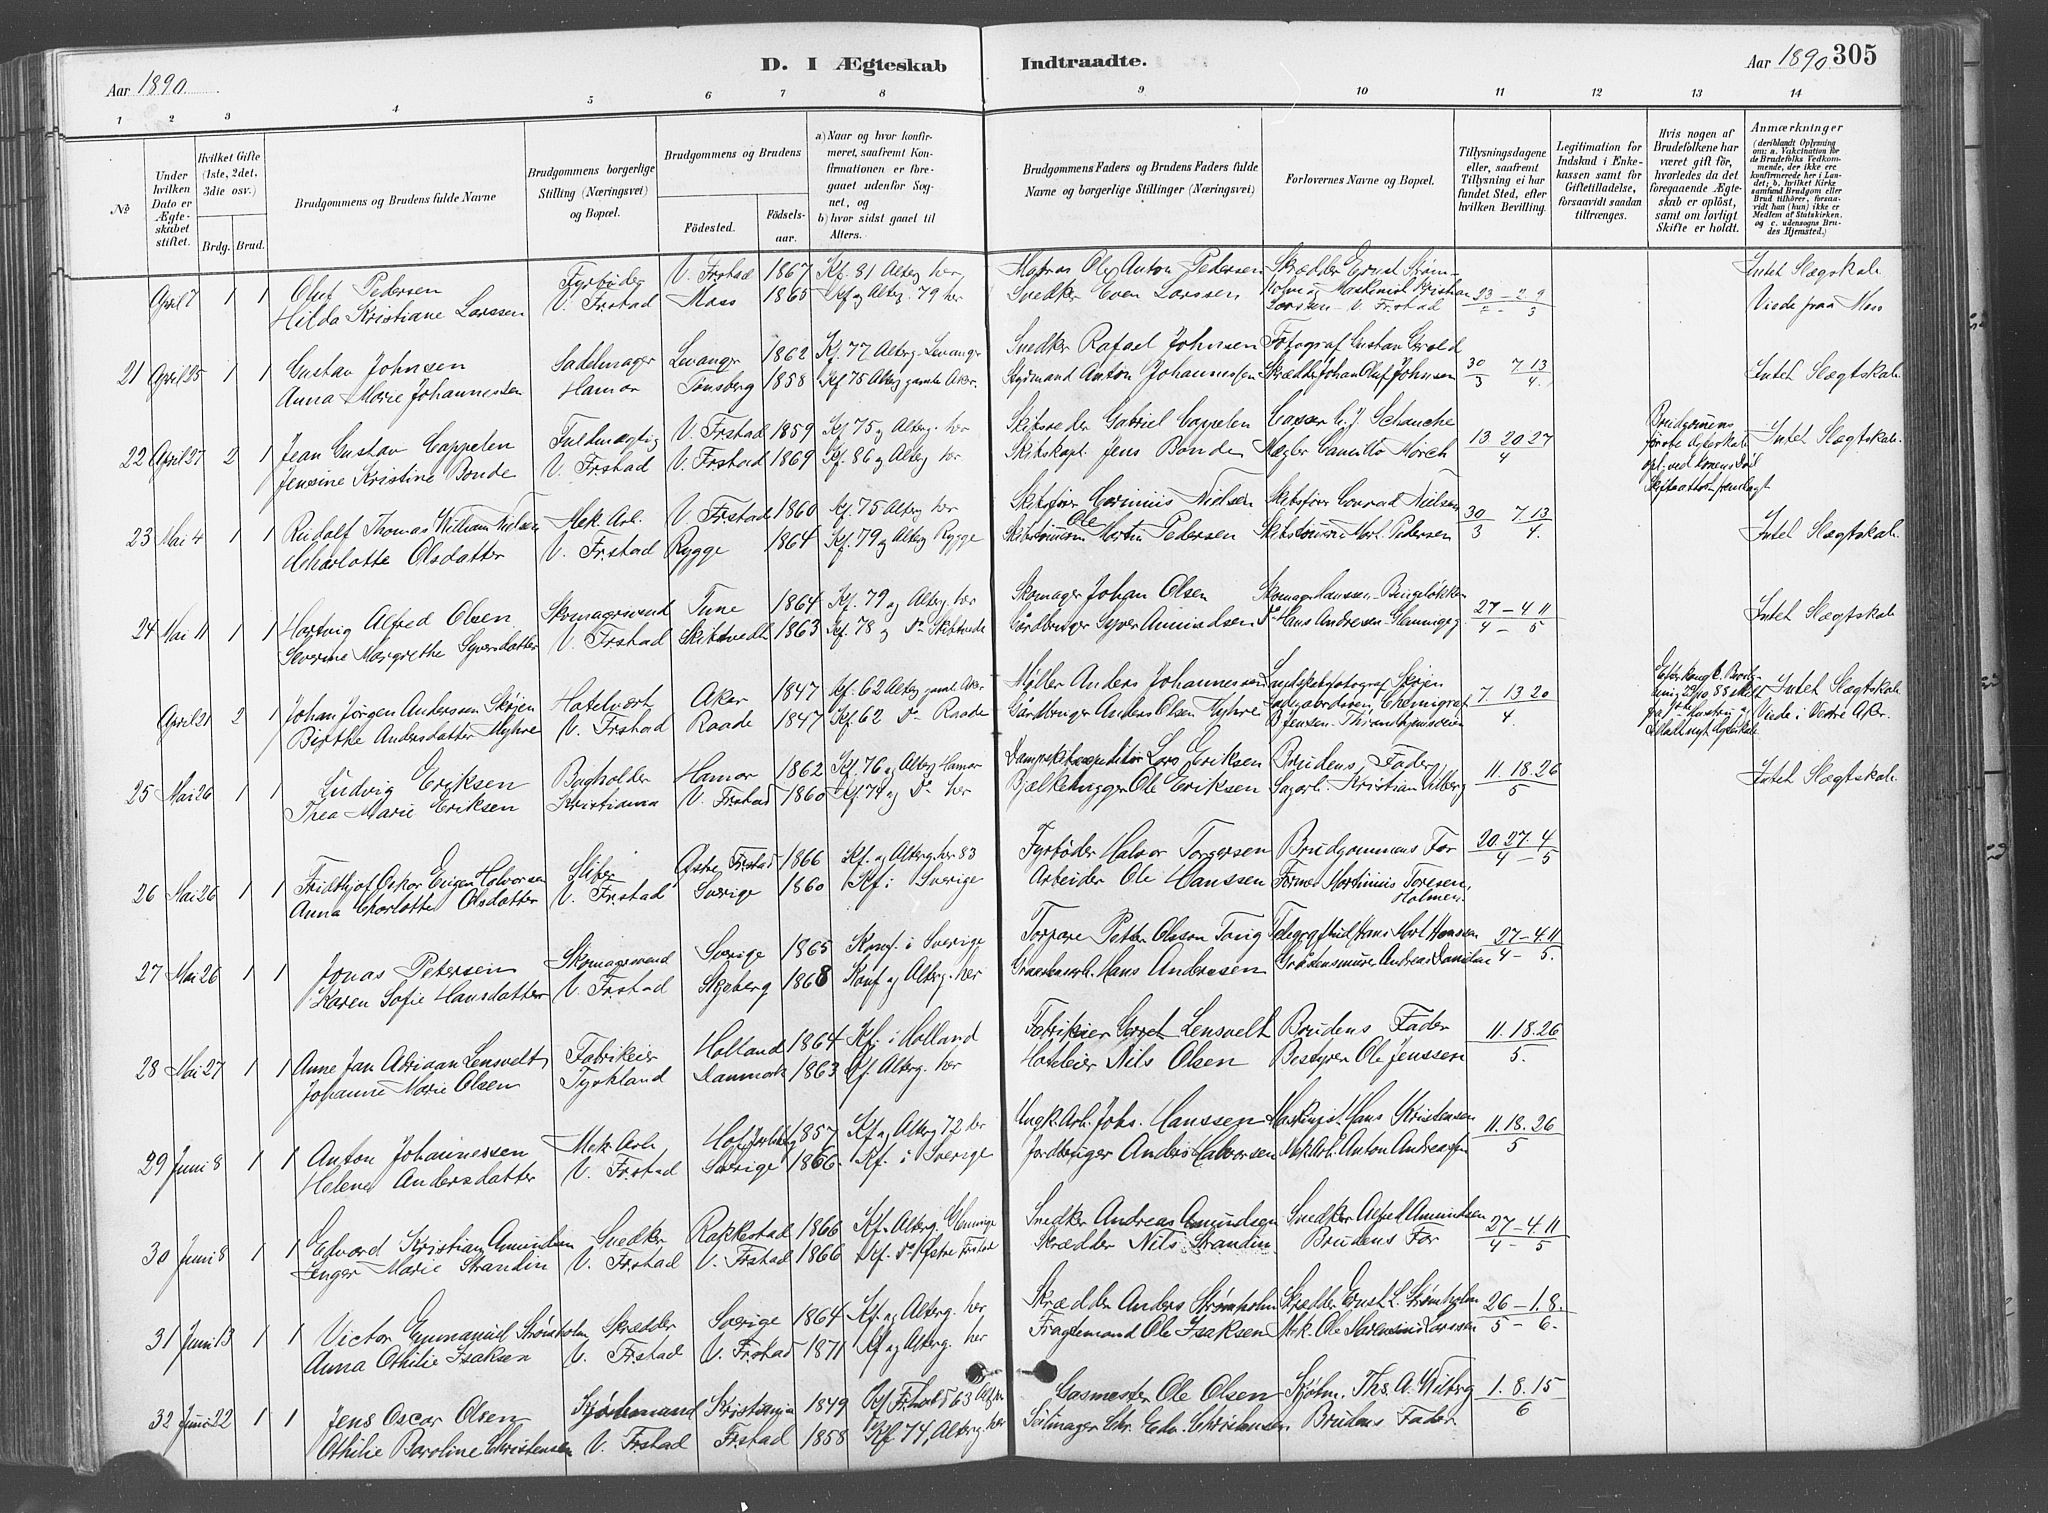 Aar 1890.
D. I Ægteskab Indtraadte.
Aar 1890. 305
1 2 3 4 5 6 7 8 9 10 11 12 13 14
No
Under hvilken Dato er Ægteskabet stiftet.
Hvilket Gifte (1ste, 2det, 3die osv.)
Brdg. Brud.
Brudgommens og Brudens fulde Navne
Brudgommens borgerlige Stilling (Næringsvei) og Bopæl.
Brudgommens og Brudens
Födested.
Födsels-aar.
a) Naar og hvor konfirmeret, saafremt Konfirmationen er foregaaet udenfor Sognet, og
b) hvor sidst gaaet til Alters.
Brudgommens Faders og Brudens Faders fulde Navne og borgerlige Stillinger (Næringsvei)
Forlovernes Navne og Bopæl.
Tillysningsdagene eller, saafremt Tillysning ei har fundet Sted, efter hvilken Bevilling.
Legitimation for Indskud i Enkekassen samt for Giftetilladelse, forsaavidt saadan tiltrænges.
Hvis nogen af Brudefolkene har været gift før, hvorledes da det foregaaende Ægteskab er opløst, samt om lovligt Skifte er holdt.
Anmærkninger
(deriblandt Oplysning om: a. Vakcination for de Brudefolks Vedkommende, der ikke ere konfirmerede her i Landet; b. hvilket Kirkesamfund Brudgom eller Brud tilhörer, forsaavidt han (hun) ikke er Medlem af Statskirken, og c. udensogns Brudes Hjemsted.)
April 7 1 1 Oluf Pedersen Fyrbøder V. Frstad 1867 Kf. 81 Alterg. her Skrædder Ernst Strøm- Intet Slægtskab
Hilda Kristiane Larssen V. Frstad Moss 1865 Kf og Alterg. 79 her Snedker Even Larssen holm og Maskinist Kristian Larssen V. Frstad Viede fra Moss
21 April 25 1 1 Gustav Johnsen Sadelmager Levanger 1862 Kf. 77 Alterg. Levanger Snedker Rafael Johnsen Fotograf Gustav 30/3 7 13/4. Intet Slægtskab.
Anna Marie Johannessen Hamar Tønsberg 1858 Kf 75 Alterg gamle Aker. Styrmand Anton Johannessen Skrædder Johan Oluf Johnsen
22 April 27 2 1 Jean Gustav Cappelen Fuldmægtig V. Frstad 1859 Kf 75 og Alterg. her Skibsreder Gabriel Cappelen Schanche 13 20 27/4 Brudgommens første Ægteskab opl. ved Konens Død Intet Slægtskab.
Jensine Kristine Bonde V. Frstad V. Frstad 1869 Kf. 86 og Alterg her Skibskapt. Jens Bonde Mægler Camillo Mörch
23 Mai 4 1 1 Rudolf Thomas William Nielsen Mek. Arb. V. Frstad 1860 Kf. 75 Alterg her Skibsfører Nielsen Skibsfører Conrad Nielsen 30/3 7 13/4. Intet Slægtskab.
Charlotte Olsdatter V. Frstad Rygge 1864 Kf. 79 og Alterg Rygge Ole Martin Pedersen Mart. Pedersen
24 Mai 11 1 1 Hartvig Alfred Olsen Skomagersvend Tune 1864 Kf. 79 og Alterg. her Skomager Johan Olsen Skomager Hanssen 27 – 4 11/4 – 5 Intet Slægtskab
Severine Margrethe Syversdatter V. Frstad Skibtvedt 1863 Kf. 78 og Do Skibtvedt Gårdbruger Syver Amundsen Do Hans Andresen
April 21 2 1 Johan Jørgen Anderssen Skøjen Hotelvært Aker 1847 Kf. 62 Alterg gamle Aker Møller Anders Johannessen Skøjen 7. 13 20/4. Intet Slægtskab.
Birthe Andersdatter Myhre V. Frstad Raade 1847 Kf 62 Do Raade Gårdbruger Anders Olsen Myhre Viede i Vestre Aker.
25 Mai 26 1 1 Ludvig Eriksen Bogholder Hamar 1862 Kf. 76 og Alterg Hamar Lars Eriksen Brudens Fader, 11. 18. 26/5 Intet Slægtskab
Thea Marie Eriksen Kristiania V. Frstad 1860 Kf 74 og Do her Bjælkehugger Ole Eriksen Kristian Vilberg
26 Mai 26 1 1 Fridthjof Oskar Eugen Halvorsen Sliber Østre Frstad 1866 Kf. og Alterg. her 83 Fyrbøder Halvor Torgersen Brudgommens Far 20. 27 – 4/4 – 5
Anna Charlotte Olsdatter V. Frstad Sverige 1860 Kf. i Sverige Arbeider Ole Hanssen Former Martinius Toresen, Holmen.
27 Mai 26 1 1 Jonas Petersen Skomagersvend Sverige 1865 Konf. i Sverige Torpare Petter Olsson Hans Mart. Hanssen 27 – 4 11/4 – 5.
Karen Sofie Hansdatter V. Frstad Skjeberg 1868 Konf og Alterg. her Hans Andersen
28 Mai 27 1 1 Anne Jan Adriaan Lensvelt Fabrikeier Holland 1864 Kf. i Holland Fabrikeier Gerret Lensvelt Brudens Fader 11. 18. 26/5.
Johanne Marie Olsen Tyskland Danmark 1863 Kf. Alterg. her Hoteleier Nils Olsen Bestyrer Ole Jenssen
29 Juni 8 1 1 Anton Johannessen Mek. Arb. Hof Jarlsberg 1857 Kf og Alterg 72 her Joh. Hanssen Maskinist Hans Kristensen 11. 18. 26/5
Helene Andersdatter V. Frstad Sverige 1866. Kf. i Sverige Jordbruger Anders Halvorsen Mek Arb. Anton Andreassen
30 Juni 8 1 1 Edvard Kristian Amundsen Snedker Rakkestad 1866 Kf. Alterg. Glemminge Snedker Andreas Amundsen Snedker Alfred Amundsen 27 – 4 11/4 – 5
Inger Marie Strandin V. Frstad V. Frstad 1866 Kf. Do Østre Frstad Skrædder Nils Strandin Brudens Far
31 Juni 13 1 1 Victor Emmanuel Strømholm Skrædder Sverige 1864 Kf. og Alterg. her Skrædder Anders Strømholm Skrædder Ernst L. Strømholm 26 – 1. 8./5 – 6.
Anna Othilie Isaksen V. Frstad V. Frstad 1871 Kf og Alterg. her Fragtemand Ole Isaksen Mek. Ole Larssen
32 Juni 22 1 1 Jens Oscar Olsen Kjøbmand Kristiania 1849 Kf. Frstad 63 Gasmester Ole Olsen Kjøbm. Ths. A. Wilberg 1. 8. 15/6
Othilie Caroline Christensen V. Frstad Frstad 1858 Kf 74, Alterg. her Seilmager Chr. Edv. Christensen Brudens Fader